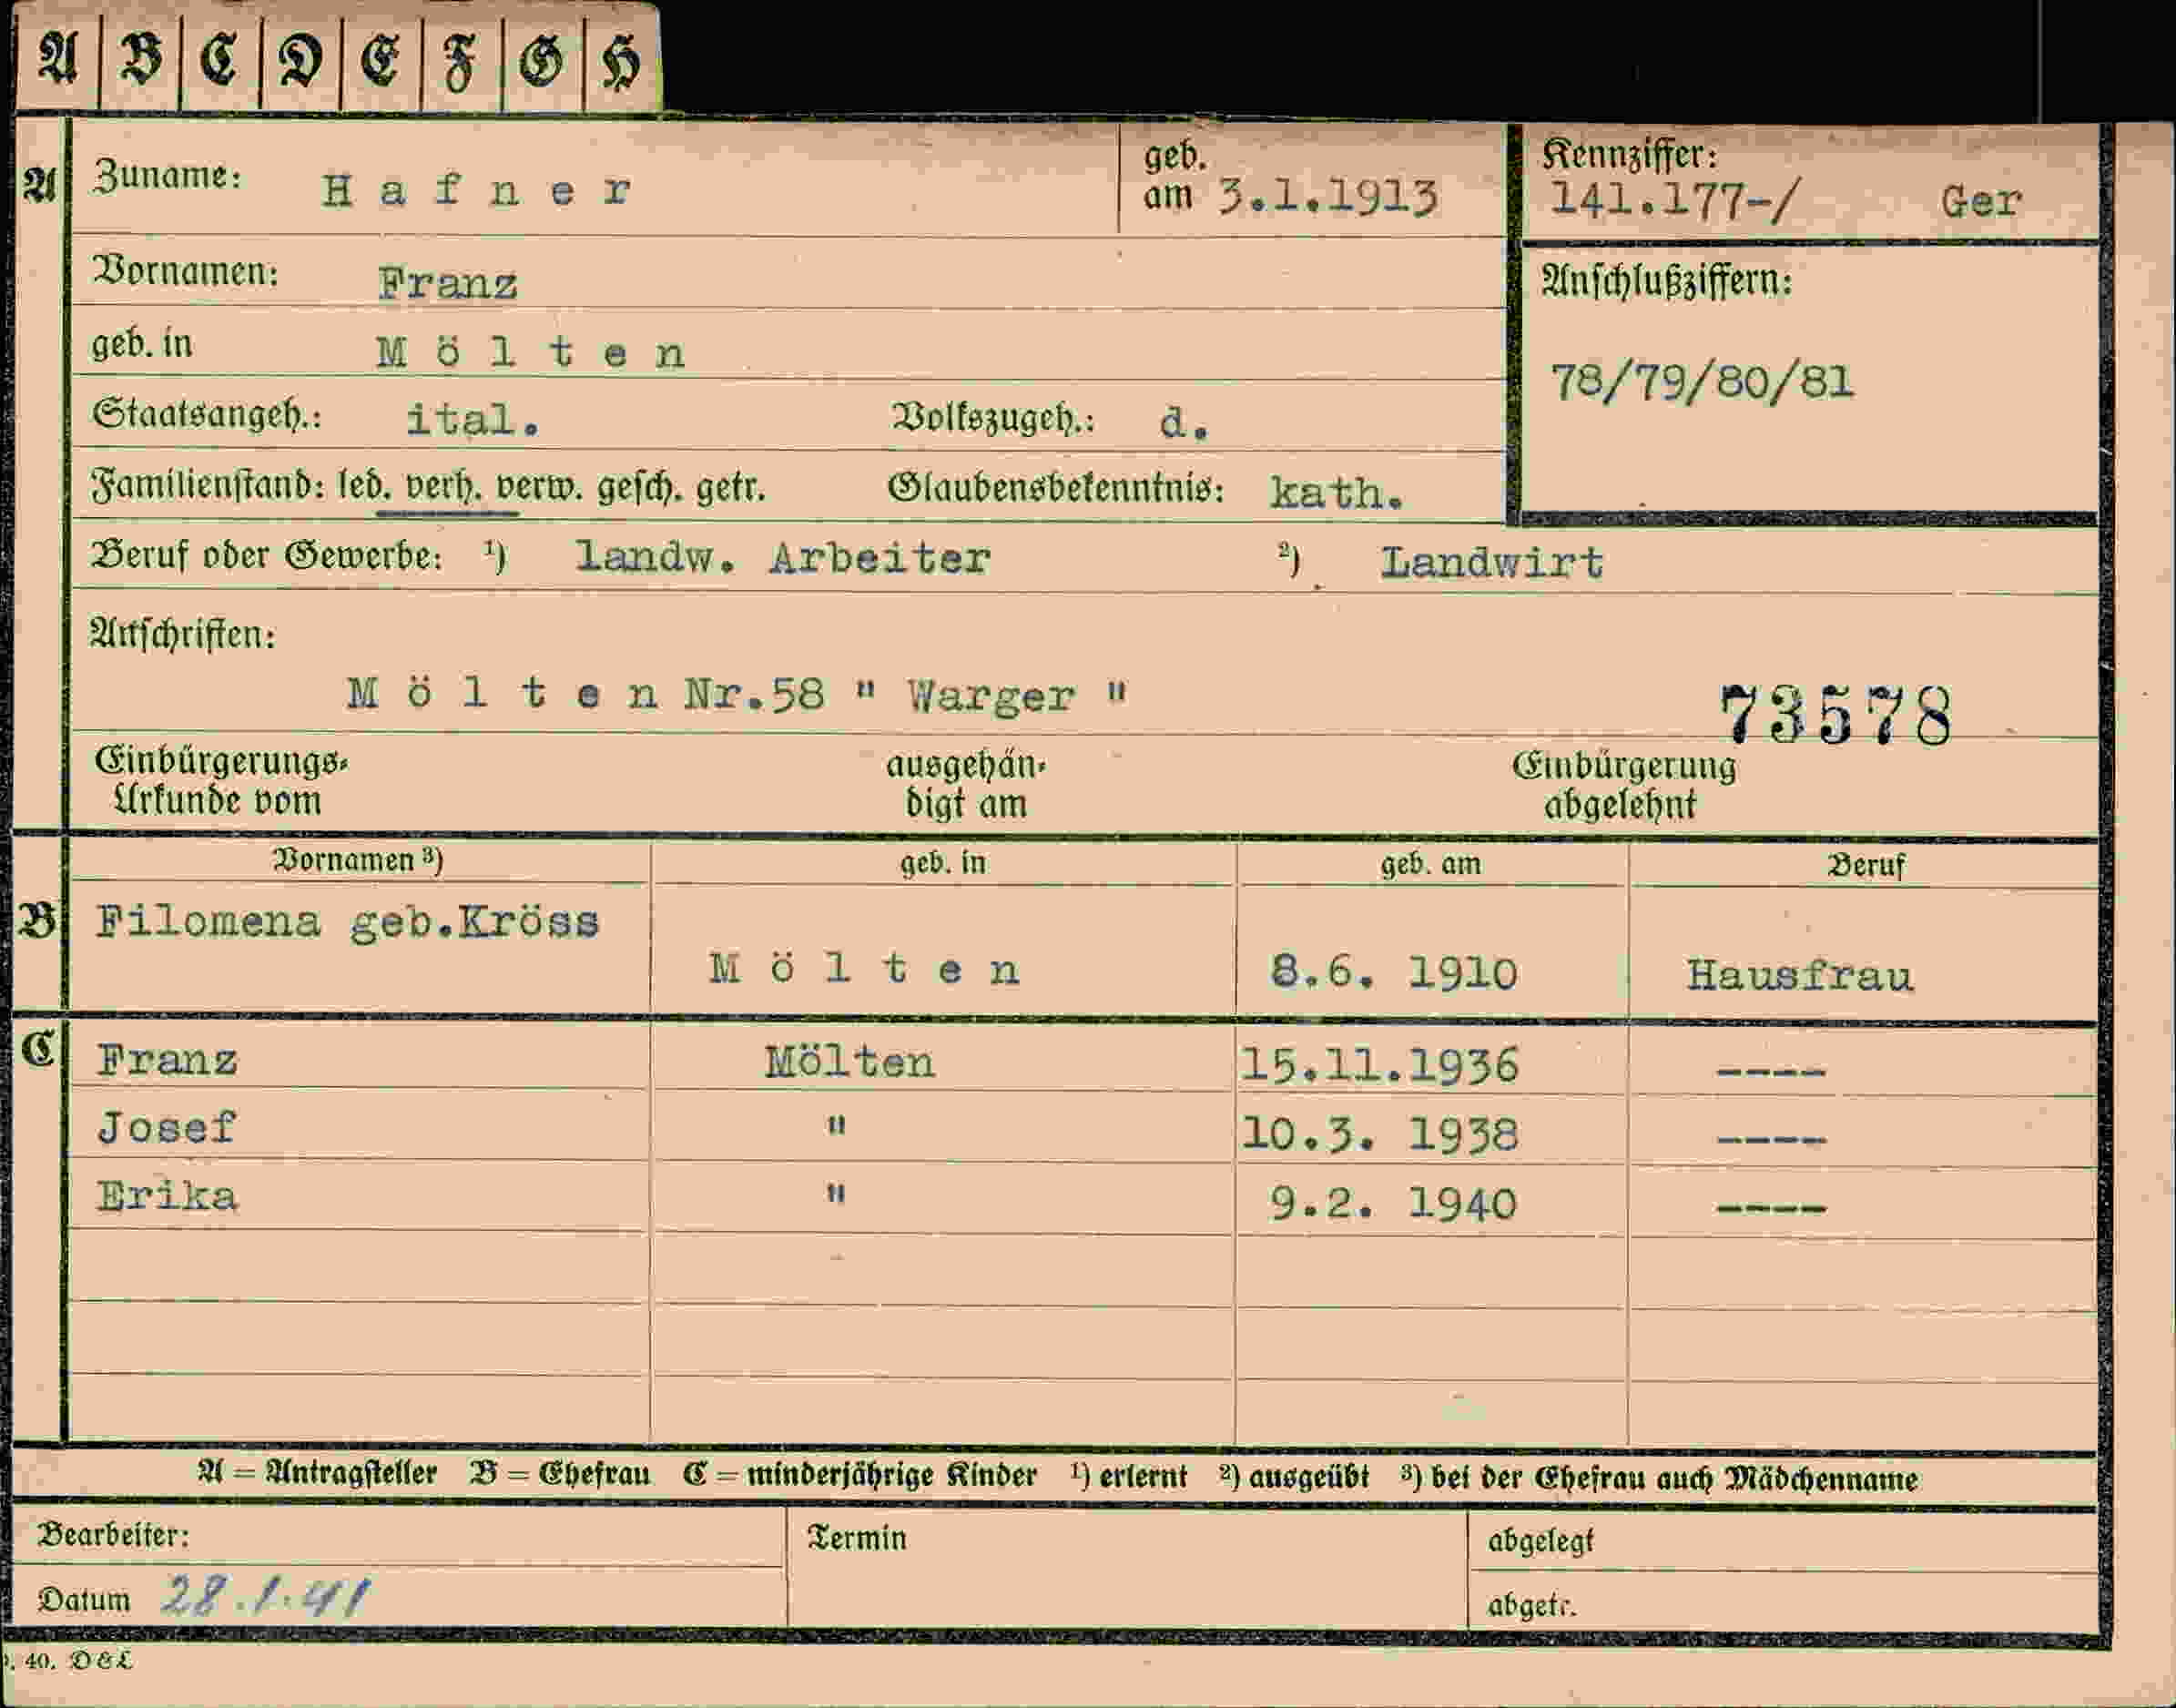 A B C D E F G H
A Zuname: Hafner geb. am 3.1.1913
Kennziffer:
141.177-/ Ger
Vornamen: Franz
Anschlußziffern:
78/79/80/81
geb. in Mölten
Staatsangeh.: ital. Volkszugeh.: d.
Familienstand: led. verh. verw. gesch. getr. Glaubensbekenntnis: kath.
Beruf oder Gewerbe: ¹) landw. Arbeiter ²) Landwirt
Anschriften:
Mölten Nr.58 " Warger " 73578
Einbürgerungs- ausgehän- Einbürgerung
Urkunde vom digt am abgelehnt
Vornamen ³) geb. in geb. am Beruf
B Filomena geb.Kröss
Mölten 8.6. 1910 Hausfrau
C Franz Mölten 15.11.1936 ----
Josef " 10.3. 1938 ----
Erika " 9.2. 1940 ----
A = Antragsteller B = Ehefrau C = minderjährige Kinder ¹) erlernt ²) ausgeübt ³) bei der Ehefrau auch Mädchenname
Bearbeiter: Termin abgelegt
Datum 28.1.41 abgetr.
40. D&L